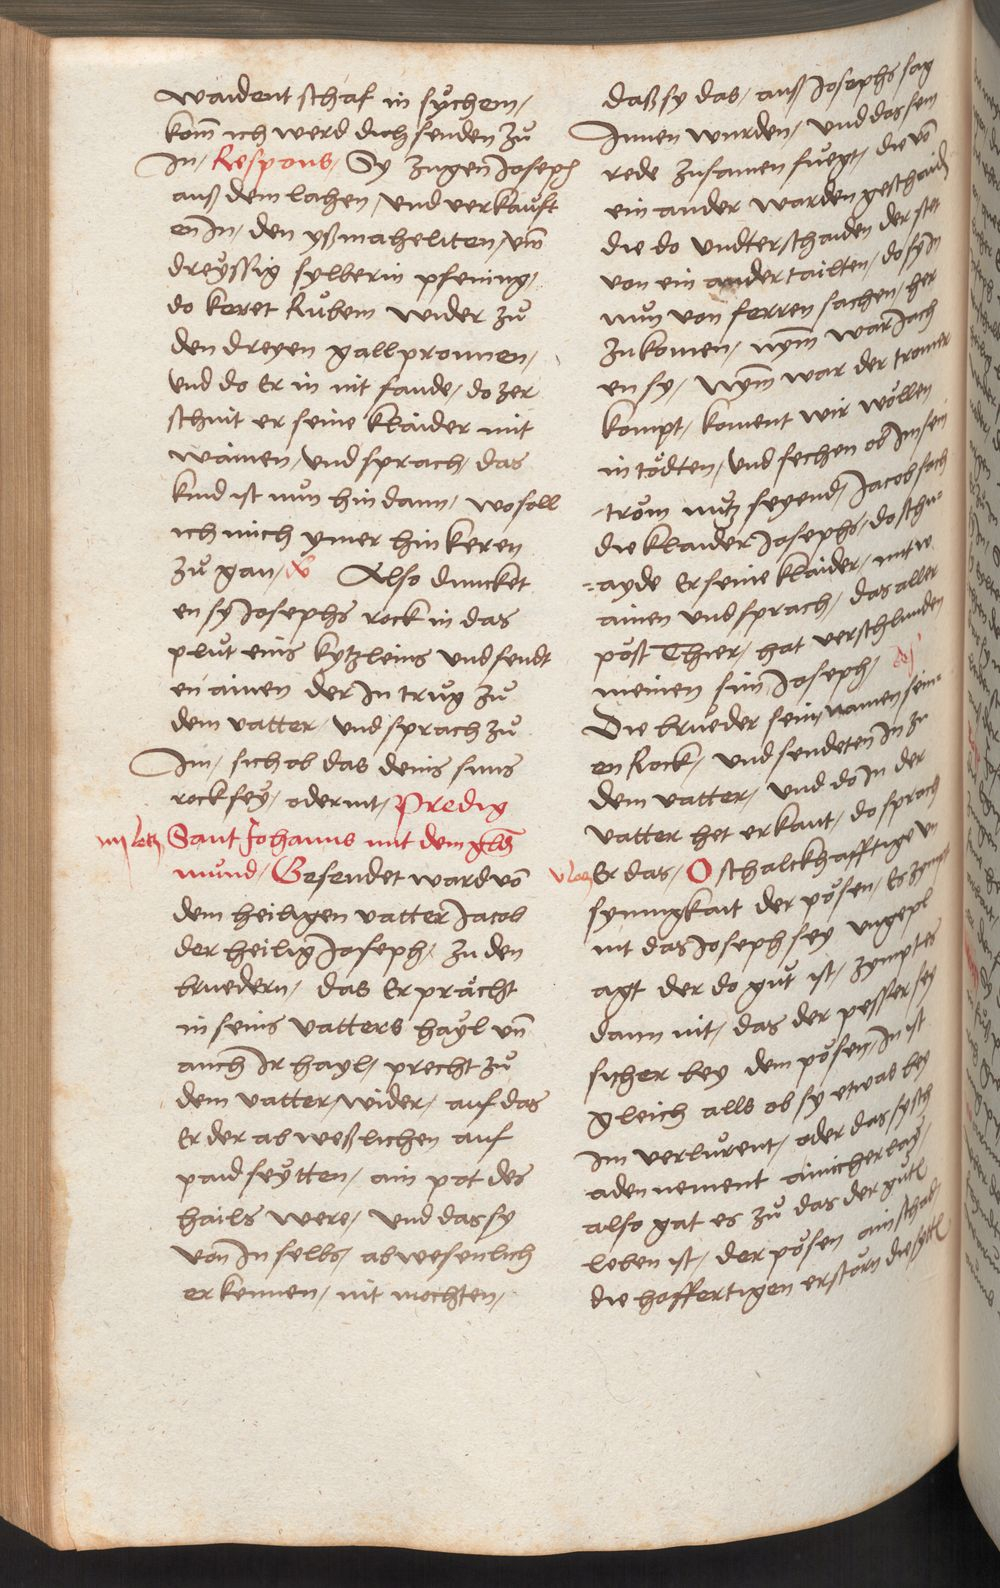 waident schaf in sychem /
kom̄ ich werd dich senden zů
In / Respons / Sy zugen Joseph
auß dem lachen / und verkauft
en In / den ysmaheliten / um̄
dreyssig sylberin pfening /
do keret Rubem wider zů
den dreyen gallpronnen /
und do Er in nit fande / do zer
schnit er seine klaider mit
wainen / und sprach / das
kind ist nun hin dann / wo soll
ich mich ymer hin keren
zů gan / Also duncket
en sy Josephs rock in das
plůt eins kytzleins und sendt
en ainen der In trůg zů
dem vatter / und sprach zů
Im / sich ob das deins suns
rock sey / oder nit / Predig
iiij letz Sant Johanns mit dem
mund / Gesendet ward vō
dem heiligen vatter Jacob
der heilig Joseph / zu den
bruedern / das Er prächt
in seins vatters hayl un̄
auch Ir hayl / precht zů
dem vatter / wider / auf das
Er der abweßlichen auf
paid seytten / ain pot des
hails were / und das sy
von In selbs / abwesenlich
erkennen / nit mochten /
daß sy das / auß Josephs sag
Innen wurden / und das sein
rede zusamen fuegt / die vō
ein ander warden geschaidē
die do undterschaiden der stet
von ein ander tailten / do sy In
nun von ferren sachen / her
zukomen / nym̄ war Jach
en sy / Nym̄ war der tromer
kompt / koment wir wöllen
in tödten / und sechen ob Im sein
tröm nutz seyend / Jacob sach
die klaider Josephs / do schn=
=ayde Er seine klaider / mit w
ainen und sprach / das aller
pöst Thier / hat verschlunden
meinen sun Joseph /
Die brueder sein / namen sein=
en Rock / und sendeten In zu
dem vatter / und do In der
vatter het erkant / do sprach
Er das / O schalckhafftige un
synnigkait der pösen / Es zympt
nit das Joseph sey ungepl
agt der do gůt ist / zympt es
dann nit / das der pesser sey
sicher bey dem pösen / In ist
gleich alls ob sy etwas bey
im verlurent / oder das sy sch
aden nement ainicherlay /
also gat es zů das der gůtē
leben ist / der pösen ain schad /
die hoffertigen erstörn die